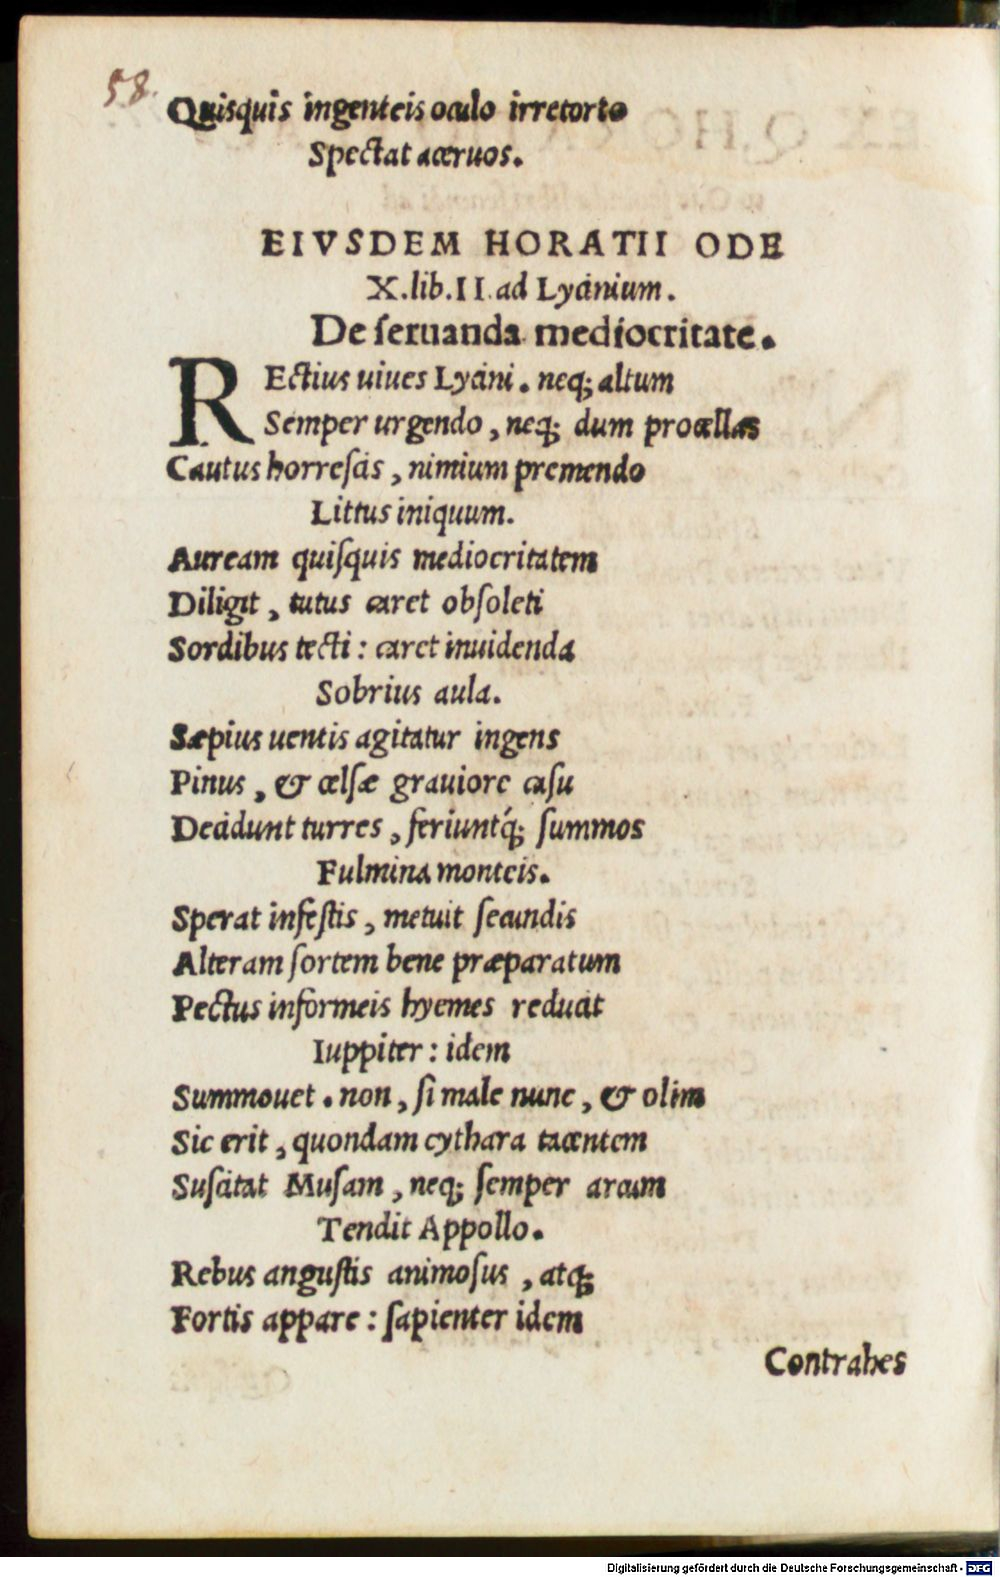 58.
Quisquis ingenteis oculo irretorto
Spectat aceruos.
EIVSDEM HORATII ODE
X.lib.II.ad Lycinium.
De ſeruanda mediocritate.
REctius uiues Lycini. neq; altum
Semper urgendo, neq; dum procellas
Cautus horreſcis, nimium premendo
Littus iniquum.
Auream quiſquis mediocritatem
Diligit, tutus caret obſoleti
Sordibus tecti: caret inuidenda
Sobrius aula.
Sæpius uentis agitatur ingens
Pinus, & celſæ grauiore caſu
Decidunt turres, feriuntq́; ſummos
Fulmina monteis.
Sperat infeſtis, metuit ſecundis
Alteram ſortem bene præparatum
Pectus informeis hyemes reducit
Iuppiter: idem
Summouet. non, ſi male nunc, & olim
Sic erit, quondam cythara tacentem
Suſcitat Muſam, neq; ſemper arcum
Tendit Appollo.
Rebus anguſtis animoſus, atq;
Fortis appare: ſapienter idem
Contrahes
Digitalisierung gefördert durch die Deutsche Forschungsgemeinschaft - DFG